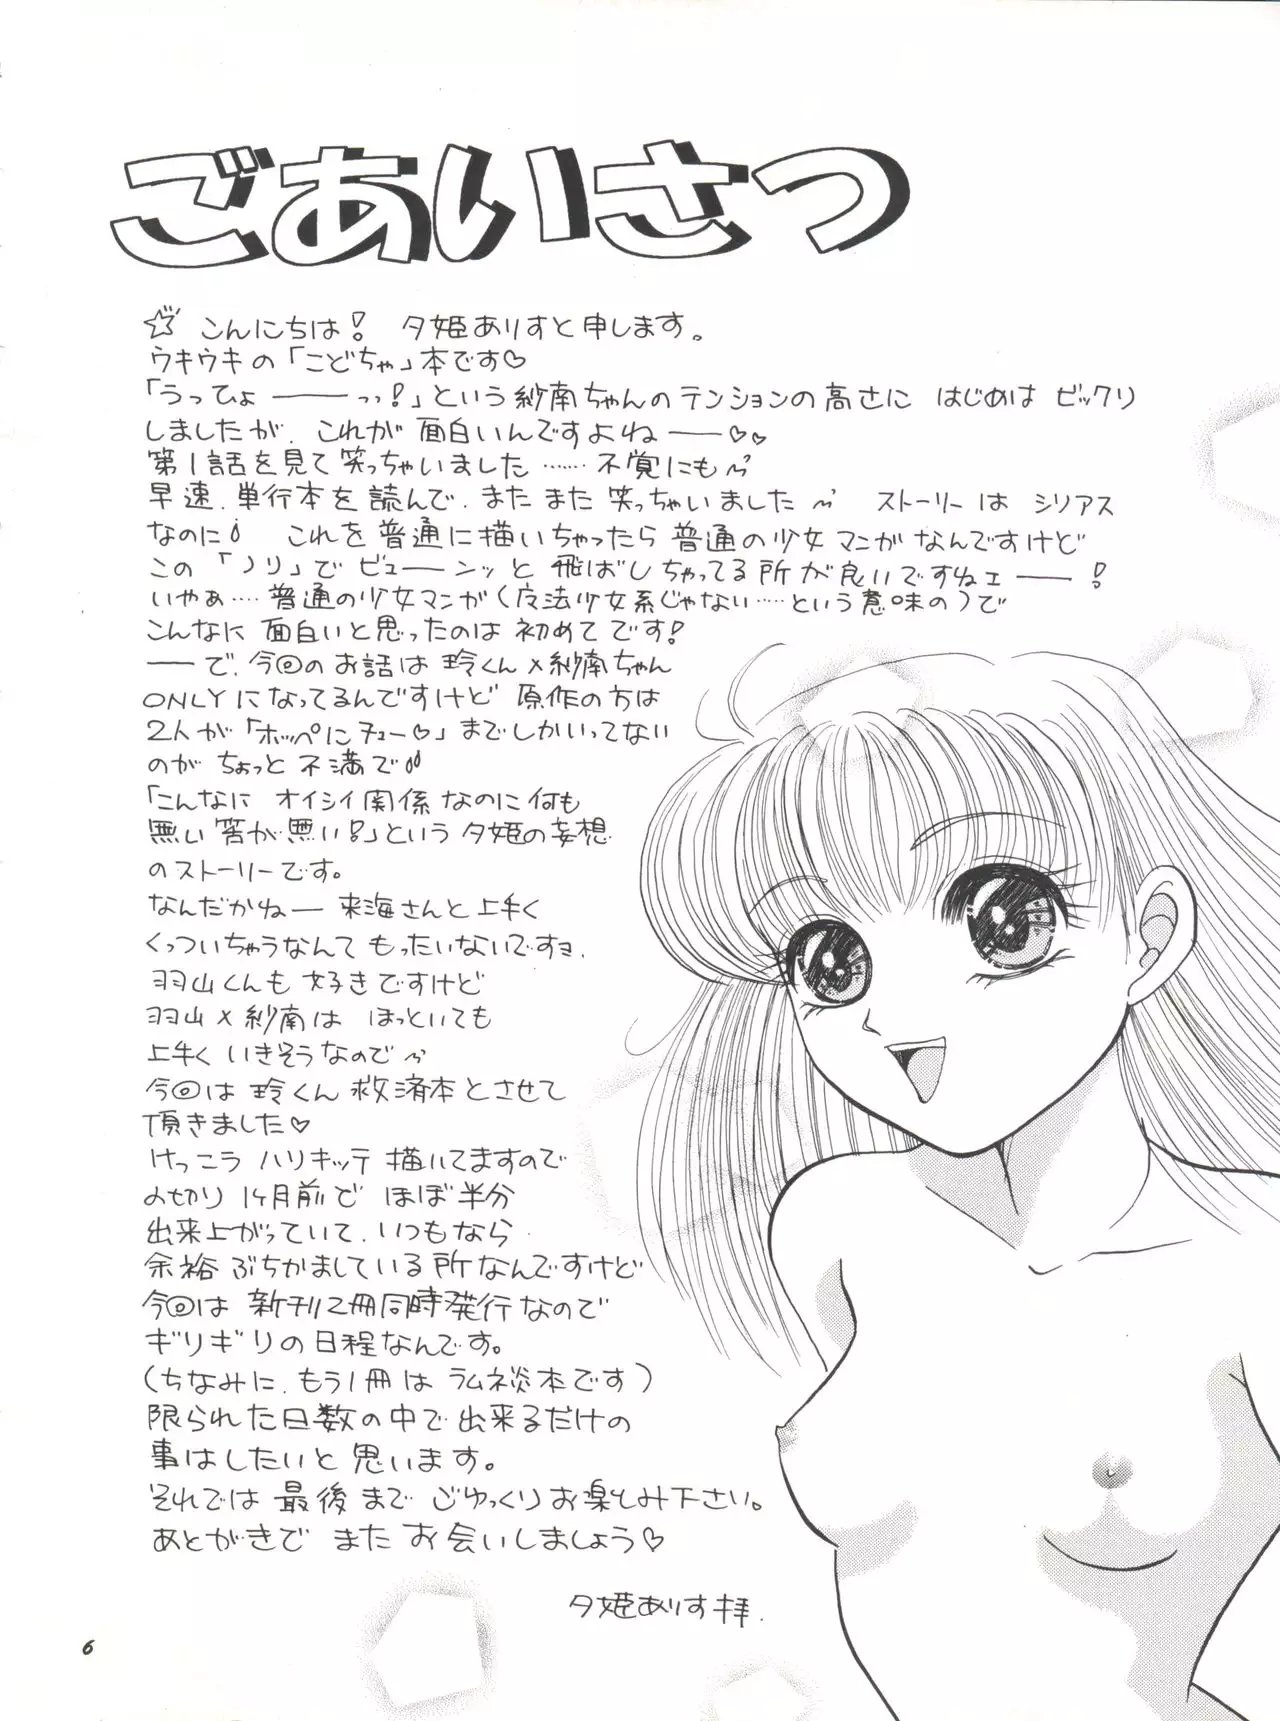 ごあいさつ
☆こんにちは! 夕姫ありすと申します。
ウキウキの「こどちゃ」本です♡
「うっひょーーーっっ!」という紗南ちゃんのテンションの高さに はじめは ビックリ
しましたが、これが 面白いんですよねー♡♡
第1話を見て笑っちゃいました……不覚にも
早速、単行本を読んで、また また 笑っちゃいました ストーリーは シリアス
なのに! これを普通に描いちゃったら普通の少女マンガなんですけど
この「ノリ」でビューーンッと飛ばしちゃってる所が良いですねェー!
いやぁ……普通の少女マンガ(魔法少女系じゃない……という意味の)で
こんなに面白いと思ったのは初めてです!
――で、今回のお話は玲くん×紗南ちゃん
ONLYになってるんですけど 原作の方は
2人が「ホッペにチュー♡」までしかいってない
のが ちょっと 不満で
「こんなに オイシイ関係なのに何も
無い筈が無い!」という夕姫の妄想
のストーリーです。
なんだかねー 来海さんと上手く
くっついちゃうなんて もったいないですヨ、
羽山くんも好きですけど
羽山×紗南は ほっといても
上手く いきそうなので
今回は 玲くん救済本とさせて
頂きました♡
けっこう ハリキッテ 描いてますので
〆切り 1ヶ月前で ほぼ半分
出来上がっていて、いつもなら
余裕 ぶちかましている所なんですけど
今回は 新刊2冊同時発行なので
ギリギリの日程なんです。
(ちなみに、もう1冊は ラムネ炎本です)
限られた日数の中で出来るだけの
事はしたいと思います。
それでは 最後まで ごゆっくりお楽しみ下さい。
あとがきで また お会いしましょう♡
夕姫ありす拝.
6